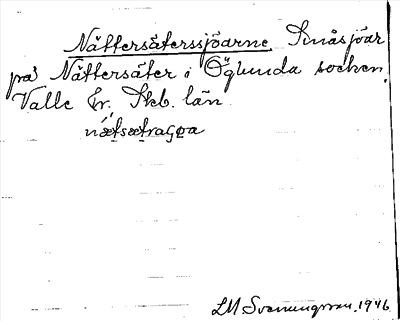 Nättersäterssjöarne Småsjöar
på Nättersäter i Öglunda socken,
Valle hr, Skb. län
LM Svenungsson, 1946